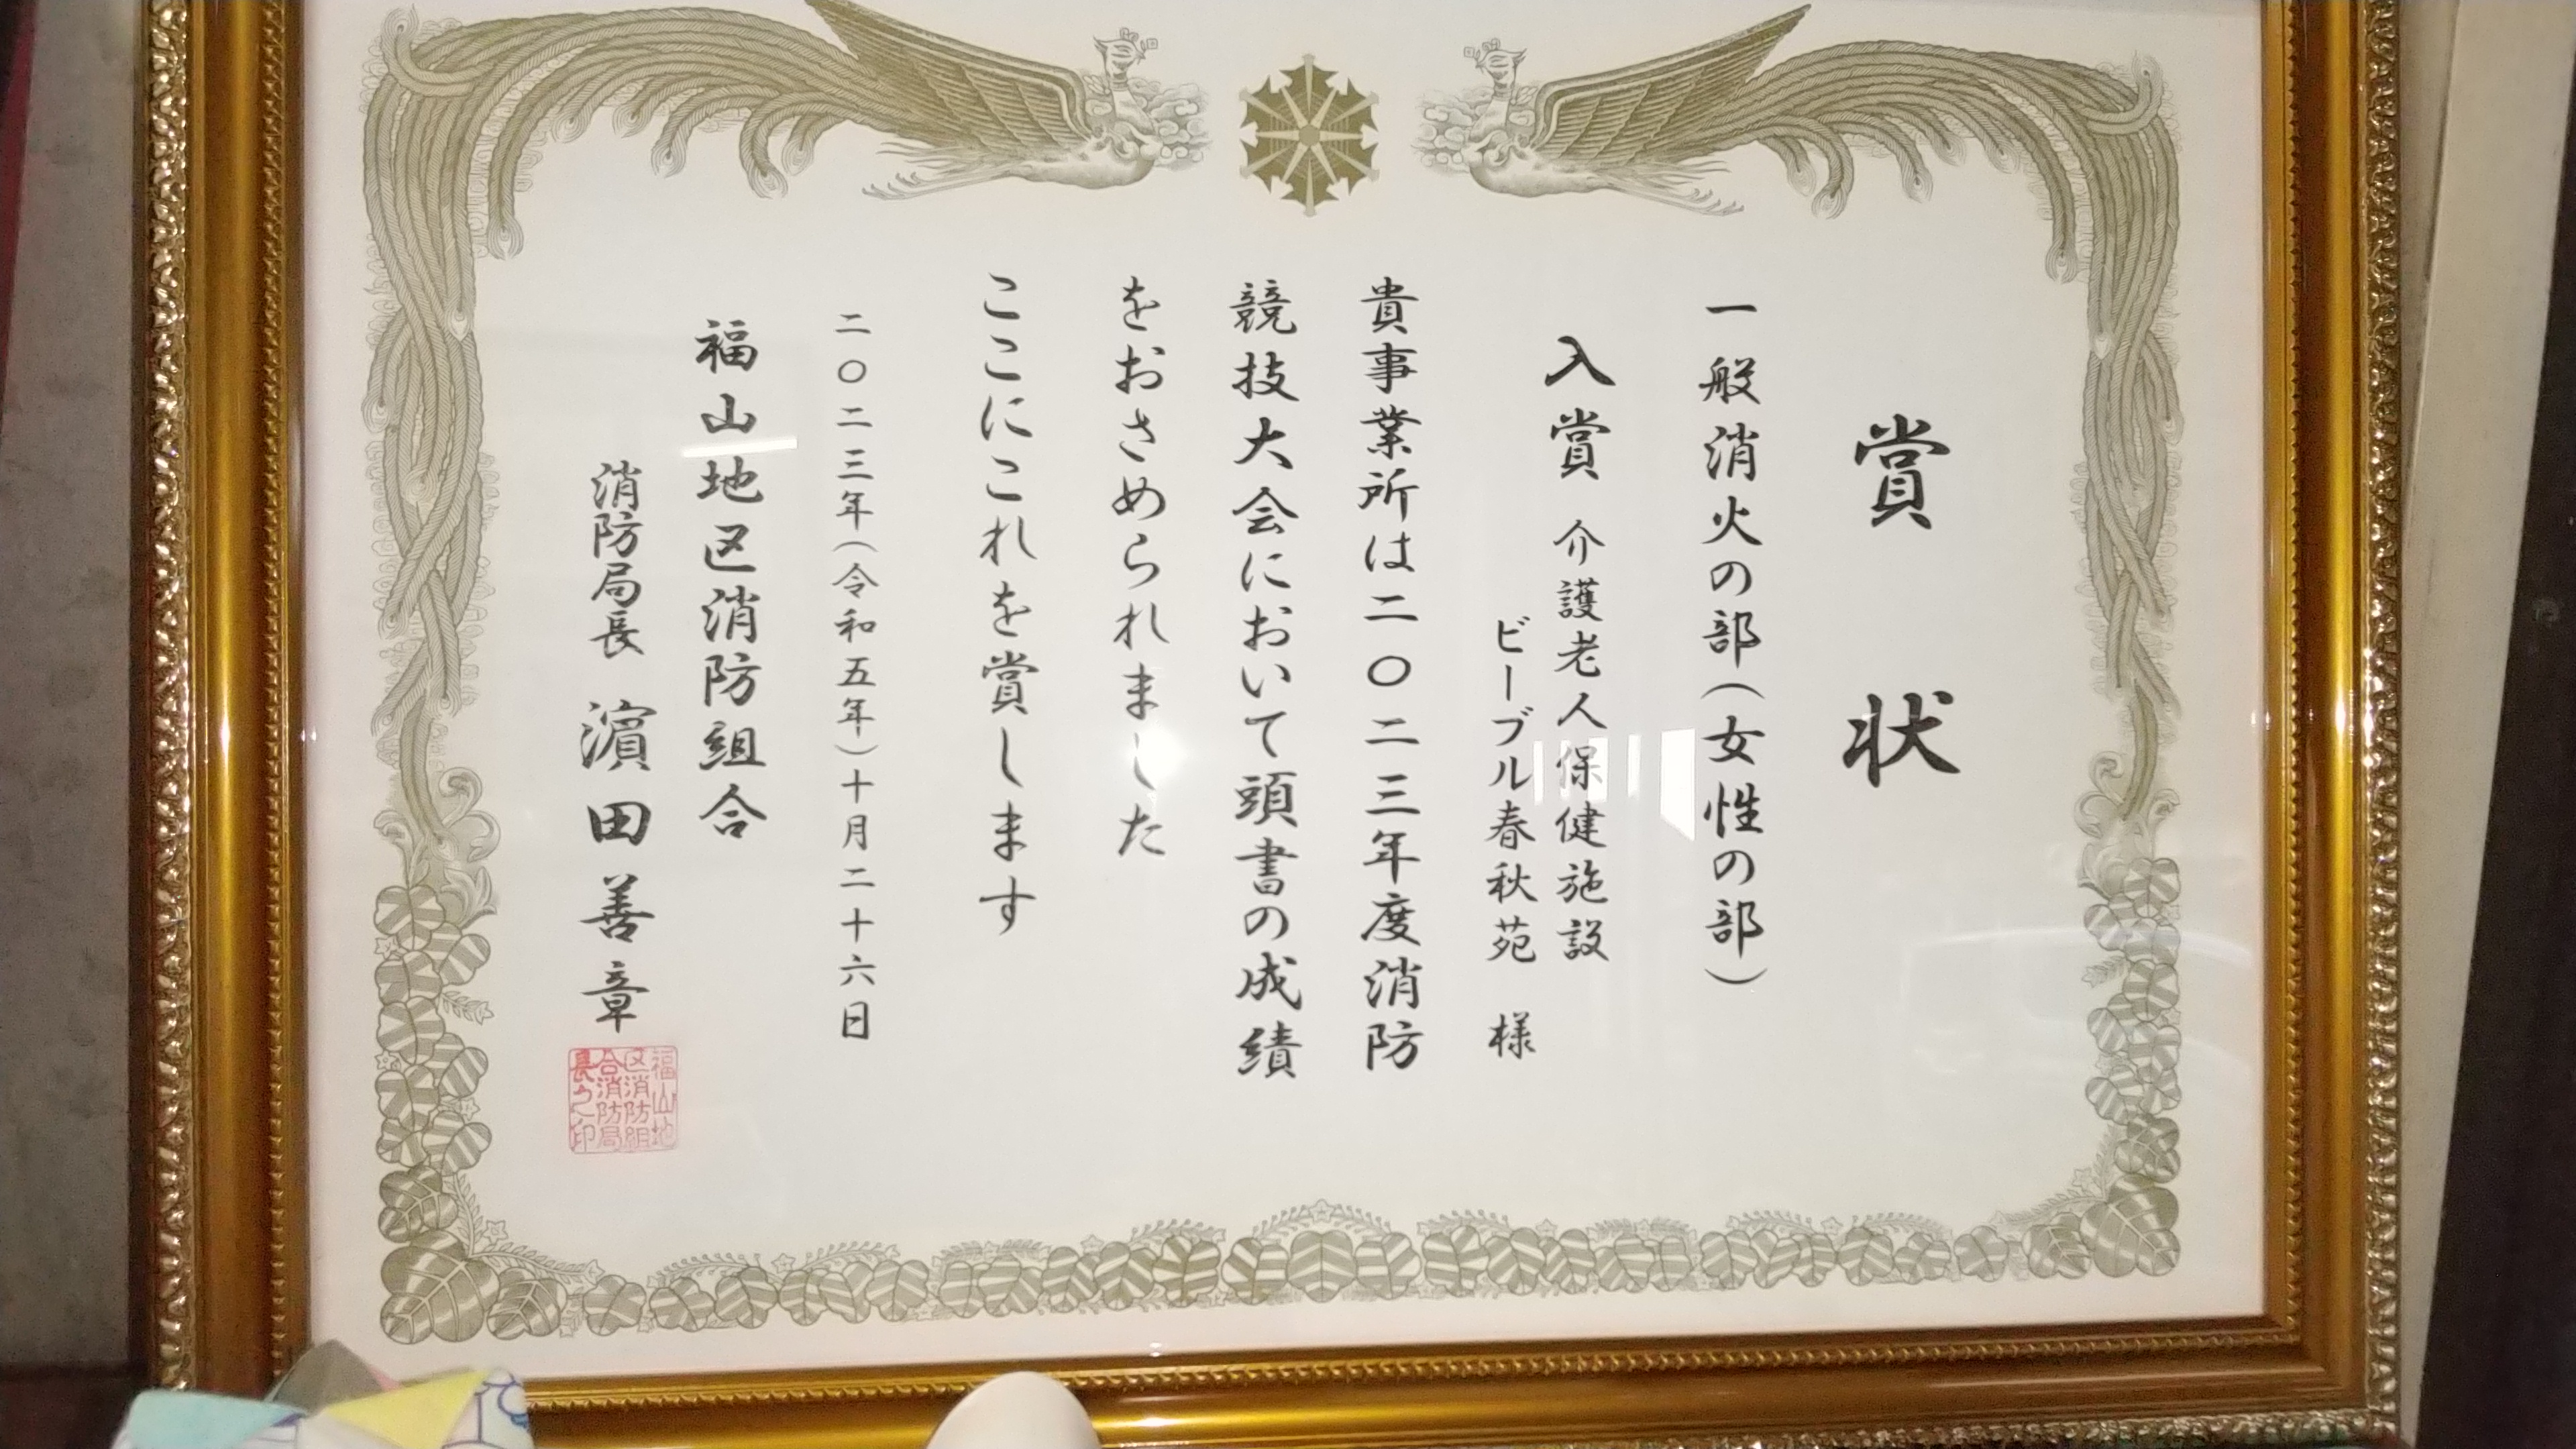 賞状
一般消火の部(女性の部)
入賞 介護老人保健施設
ビーブル春秋苑 様
貴事業所は二〇二三年度消防
競技大会において頭書の成績
をおさめられました
ここにこれを賞します
二〇二三年(令和五年)十月二十六日
福山地区消防組合
消防局長 濵田善章
福山地
区消防組
合消防局
長之印